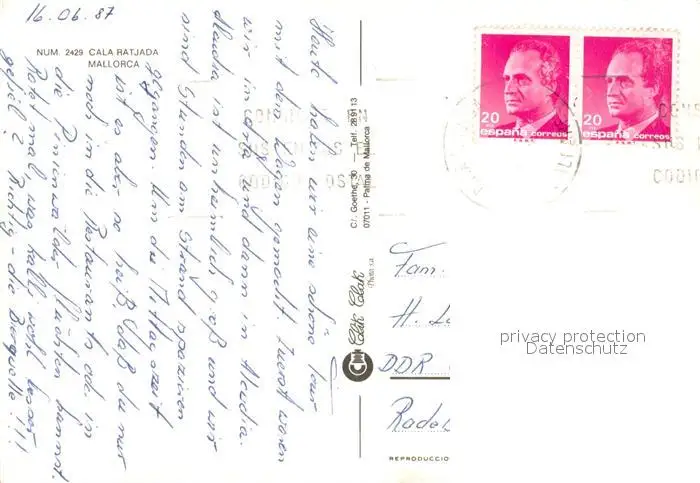 16.06.87
NUM. 2429 CALA RATJADA
MALLORCA
Heute haben wir eine schöne Tour
mit dem gemacht. Zuerst waren
wir in Arta und dann in Alcudia.
Alcudia ist unheimlich groß und wir
sind Stunden am Strand spazieren
gegangen. Um die Mittagszeit
ist es aber so heiß, daß du nur
noch in die Restaurants od. in
die flüchten kannst.
Ratet mal, was Kalli wohl besser
gefiel? Richtig - die Bierquelle!!!
C/. Goethe, 30 - Telf. 28 91 13
07011 - Palma de Mallorca
Clik Clak
Photo, s.a.
20
españa correos
20
españa correos
Fam.
H.
DDR
Rade
REPRODUCCIO
privacy protection
Datenschutz